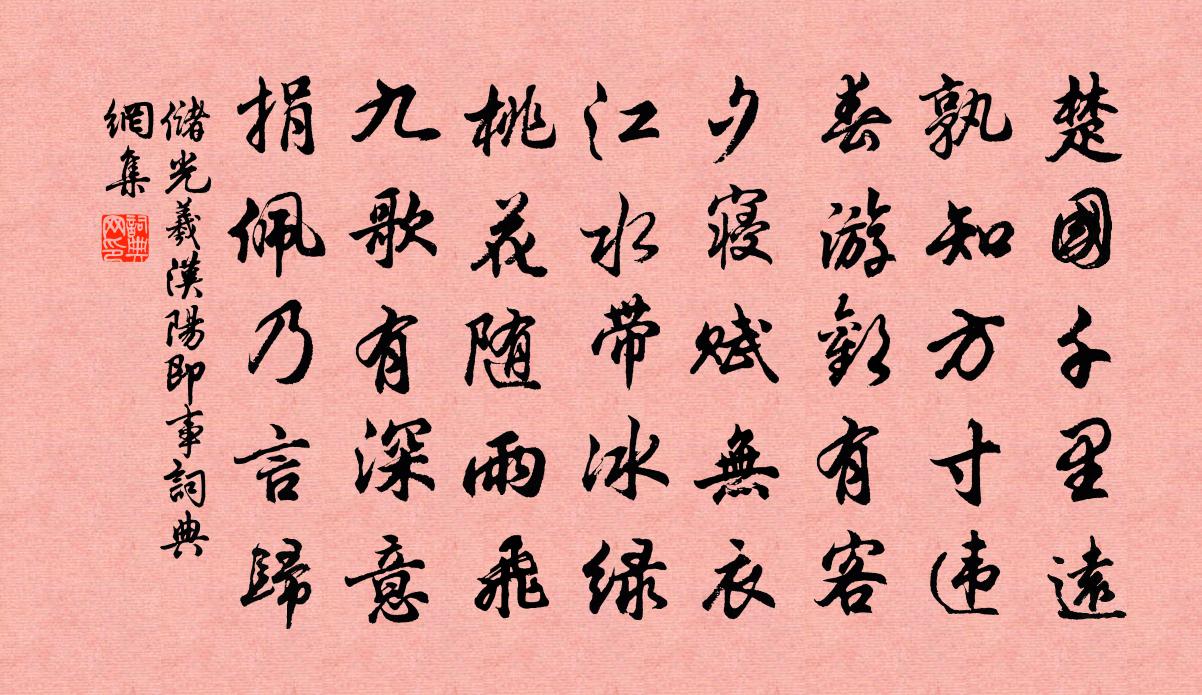 楚國千里遠
孰知方寸違
春游歡有客
夕寝賦無衣
江水带冰緑
桃花随雨飛
九歌有深意
捐佩乃言歸
儲光羲漢陽即事詞典
網集
詞典
网印